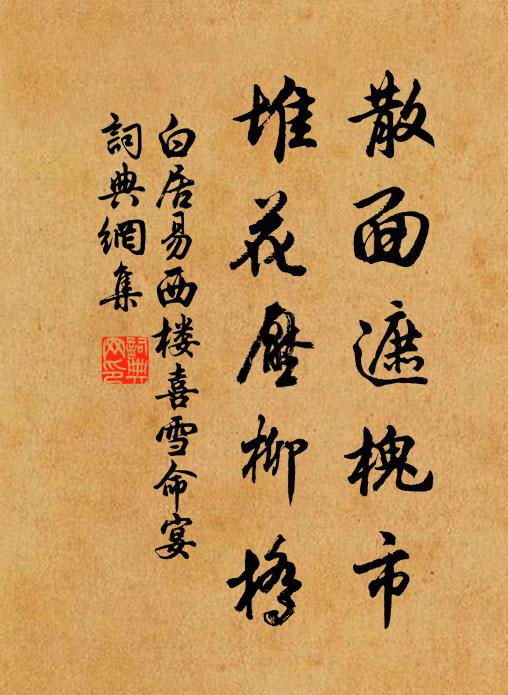 散面遮槐市
堆花壓柳橋
白居易西楼喜雪命宴
詞典網集
詞典
网印